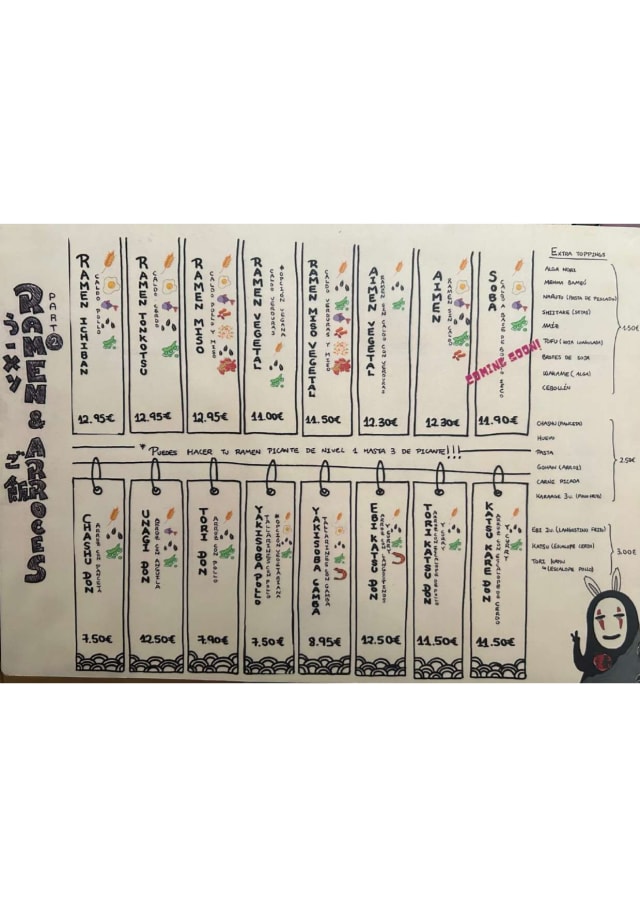 PART 2
RAMEN & ARROCES
らーメン
ご飯
RAMEN ICHIBAN
CALDO POLLO
12.95€
RAMEN TONKOTSU
CALDO CERDO
12.95€
RAMEN MISO
CALDO POLLO Y MISO
12.95€
RAMEN VEGETAL
CALDO VERDURAS
*OPCIÓN VEGANA
11.00€
RAMEN MISO VEGETAL
CALDO VERDURAS Y MISO
11.50€
AIMEN VEGETAL
RAMEN SIN CALDO CON VERDURAS
12.30€
AIMEN
RAMEN SIN CALDO
12.30€
SOBA
CALDO BASE DE
11.90€
COMING SOON!
* PUEDES HACER TU RAMEN PICANTE DE NIVEL 1 HASTA 3 DE PICANTE!!!
CHASHU DON
ARROZ CON PANCETA
7.50€
UNAGI DON
ARROZ CON ANGUILA
12.50€
TORI DON
ARROZ CON POLLO
7.90€
YAKISOBA POLLO
TALLARINES CON POLLO
*OPCIÓN VEGETARIANA
7.50€
YAKISOBA GAMBA
TALLARINES CON GAMBA
8.95€
EBI KATSU DON
ARROZ CON LANGOSTINOS
Y CURRY
12.50€
TORI KATSU DON
ARROZ CON ESCALOPE DE POLLO
Y CURRY
11.50€
KATSU KARE DON
ARROZ CON ESCALOPE DE CERDO
Y CURRY
11.50€
EXTRA TOPPINGS
ALGA NORI
MENMA BAMBÚ
NARUTO (PASTA DE PESCADO)
SHIITAKE (SETAS)
MAÍZ
TOFU (SOJA COAGULADA)
BROTES DE SOJA
WAKAME (ALGA)
CEBOLLÍN
1.50€
CHASHU (PANCETA)
HUEVO
PASTA
GOHAN (ARROZ)
CARNE PICADA
KARAAGE 3u.
2.50€
EBI 2u. (LANGOSTINO FRITO)
KATSU (ESCALOPE CERDO)
TORI KATSU
↳(ESCALOPE POLLO)
3.00€